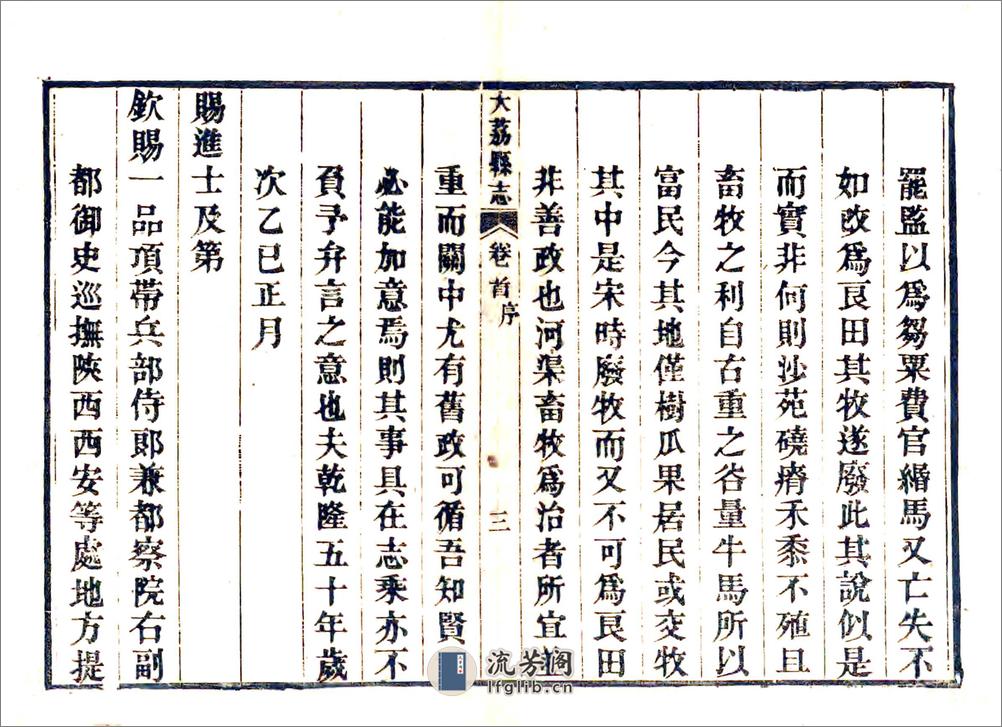 罷監以爲芻粟費官緡馬又亡失不
如改爲良田其牧遂廢此其說似是
而實非何則沙苑磽瘠禾黍不殖且
畜牧之利自古重之谷量牛馬所以
富民今其地僅樹瓜果居民或交牧
其中是宋時廢牧而又不可爲良田
非善政也河渠畜牧爲治者所宜並
大荔縣志 卷首 序 三
重而關中尤有舊政可循吾知賢
必能加意焉則其事具在志乘亦不
負予弁言之意也夫乾隆五十年歲
次乙巳正月
賜進士及第
欽賜一品頂帶兵部侍郎兼都察院右副
都御史巡撫陝西西安等處地方提
流芳阁
lfglib.cn